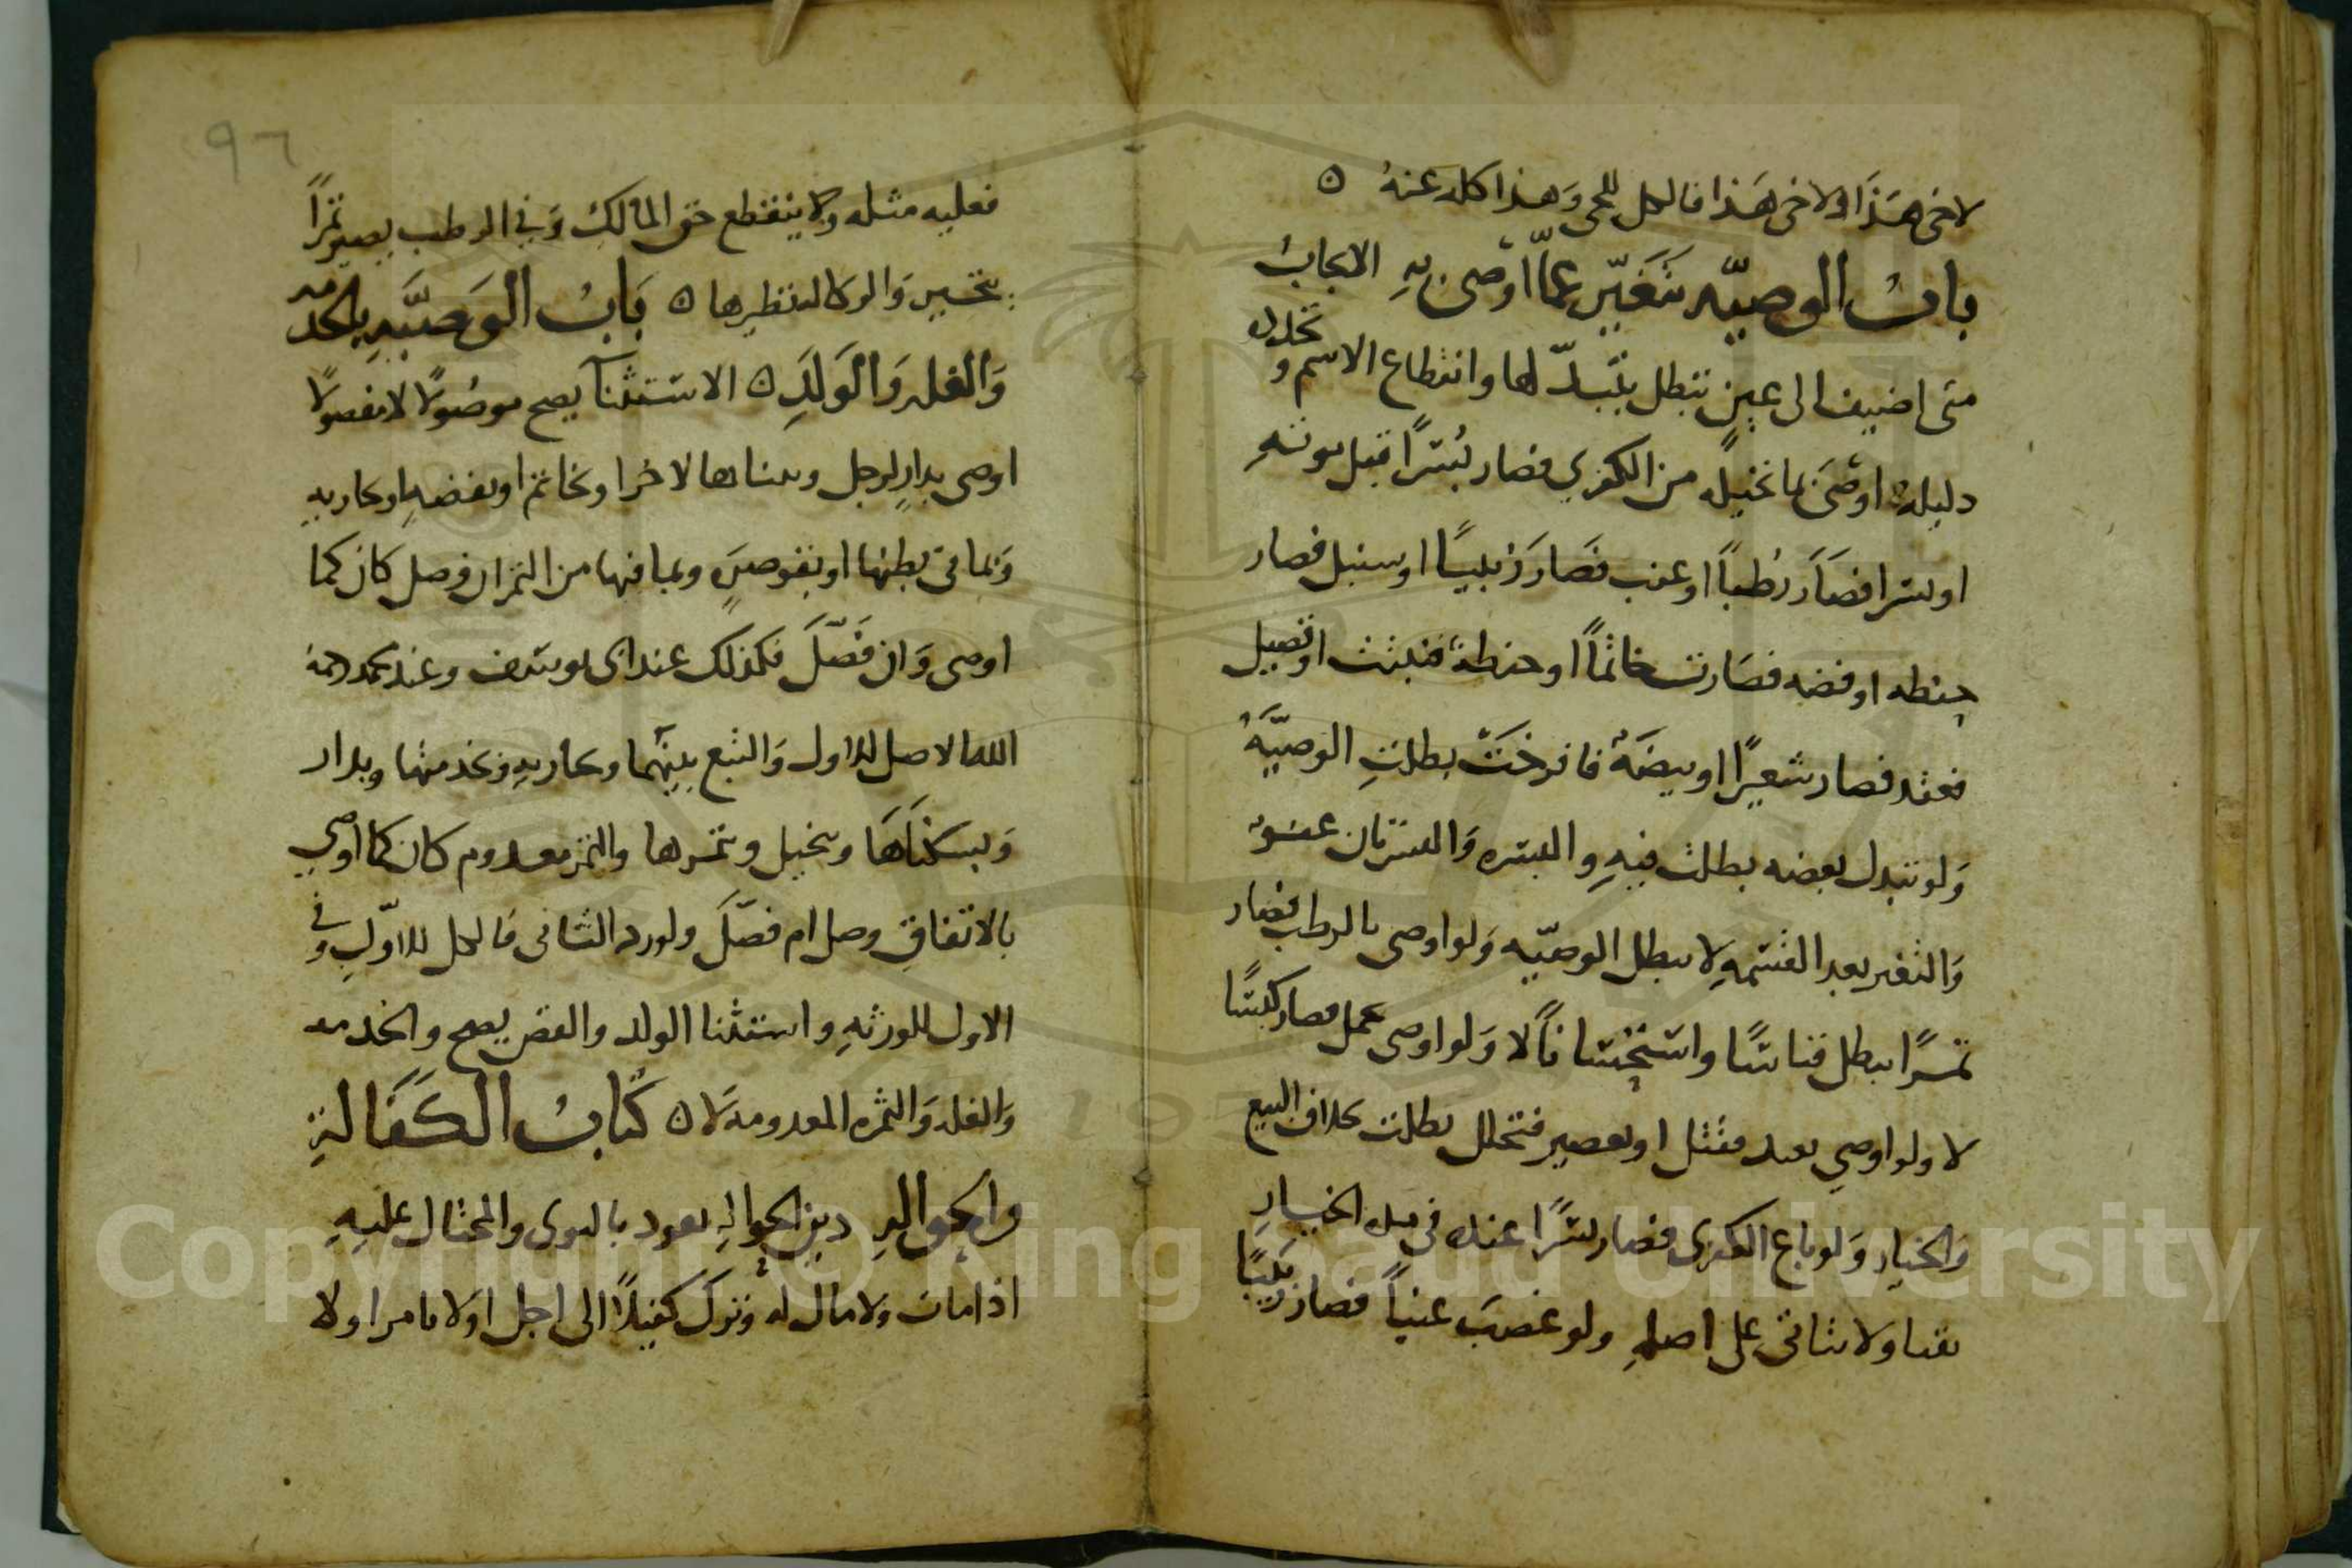 لاخى هذا ولاخى هذا فالكل للحى وهذا كله عنه ه
باب الوصيّه تتغيّر عمّا اوصى به الايجاب
متى اضيف الى عين تبطل بتبدّلها وانقطاع الاسم و
دليله اوصى بما نخيله من الكفرى فصار بُسرًا قبل موته
او بسرا فصار رُطبًا او عنب فصار زبيبًا او سنبل فصار
حنطه او فضه فصارت خاتمًا او حنطة فنبتت او فصيل
فصار شعيرًا او بيضة فافرخت بطلت الوصيّة
ولو تبدل بعضه بطلت فيه والبسره والبسرتان عفو
والتغير بعد القسمه لا يبطل الوصيّه ولو اوصى بالرطب فصار
تمرًا يبطل قياسًا واستحسانًا لا ولو اوصى بحمل فصار كبشًا
لا ولو اوصى بعبد فقتل او بعصير فتخلل بطلت بخلاف البيع
والخيار ولو باع الكفرى فصار بسرًا عنده فى مده الخيار
بقيا ولا يتاتى على اصله ولو غصب عنبًا فصار زبيبًا
٩٦
فعليه مثله ولا ينقطع حق المالك وفي الرطب يصير تمرًا
يتخير والوكاله نظيرها ه باب الوصيّه بالخدمه
والغله والولد ه الاستثنا يصح موصولًا لا مفصولًا
اوصى بدار لرجل وببناها لاخر او بخاتم او بفضه او بجاريه
وبما فى بطنها او بقوصره وبما فيها من التمر ان وصل كان كما
اوصى وان فصّل فكذلك عند ابى يوسف وعند محمد رحمه
الله الاصل للاول والتبع بينهما وبجاريه وبخدمتها وبدار
وبسكناها وبنخيل وثمرها والثمر معدوم كان كما اوصى
بالاتفاق وصل ام فصّل ولو رد الثانى فالكل للاوّل وفى
الاول للورثه واستثنا الولد والفص يصح والخدمه
والغله والثمره المعدومه لا ه كتاب الكفالة
والحواله دين الحواله يعود بالتوى والمحتال عليه
اذا مات ولا مال له وترك كفيلًا الى اجل او لا بامر او لا
Copyright © King Saud University